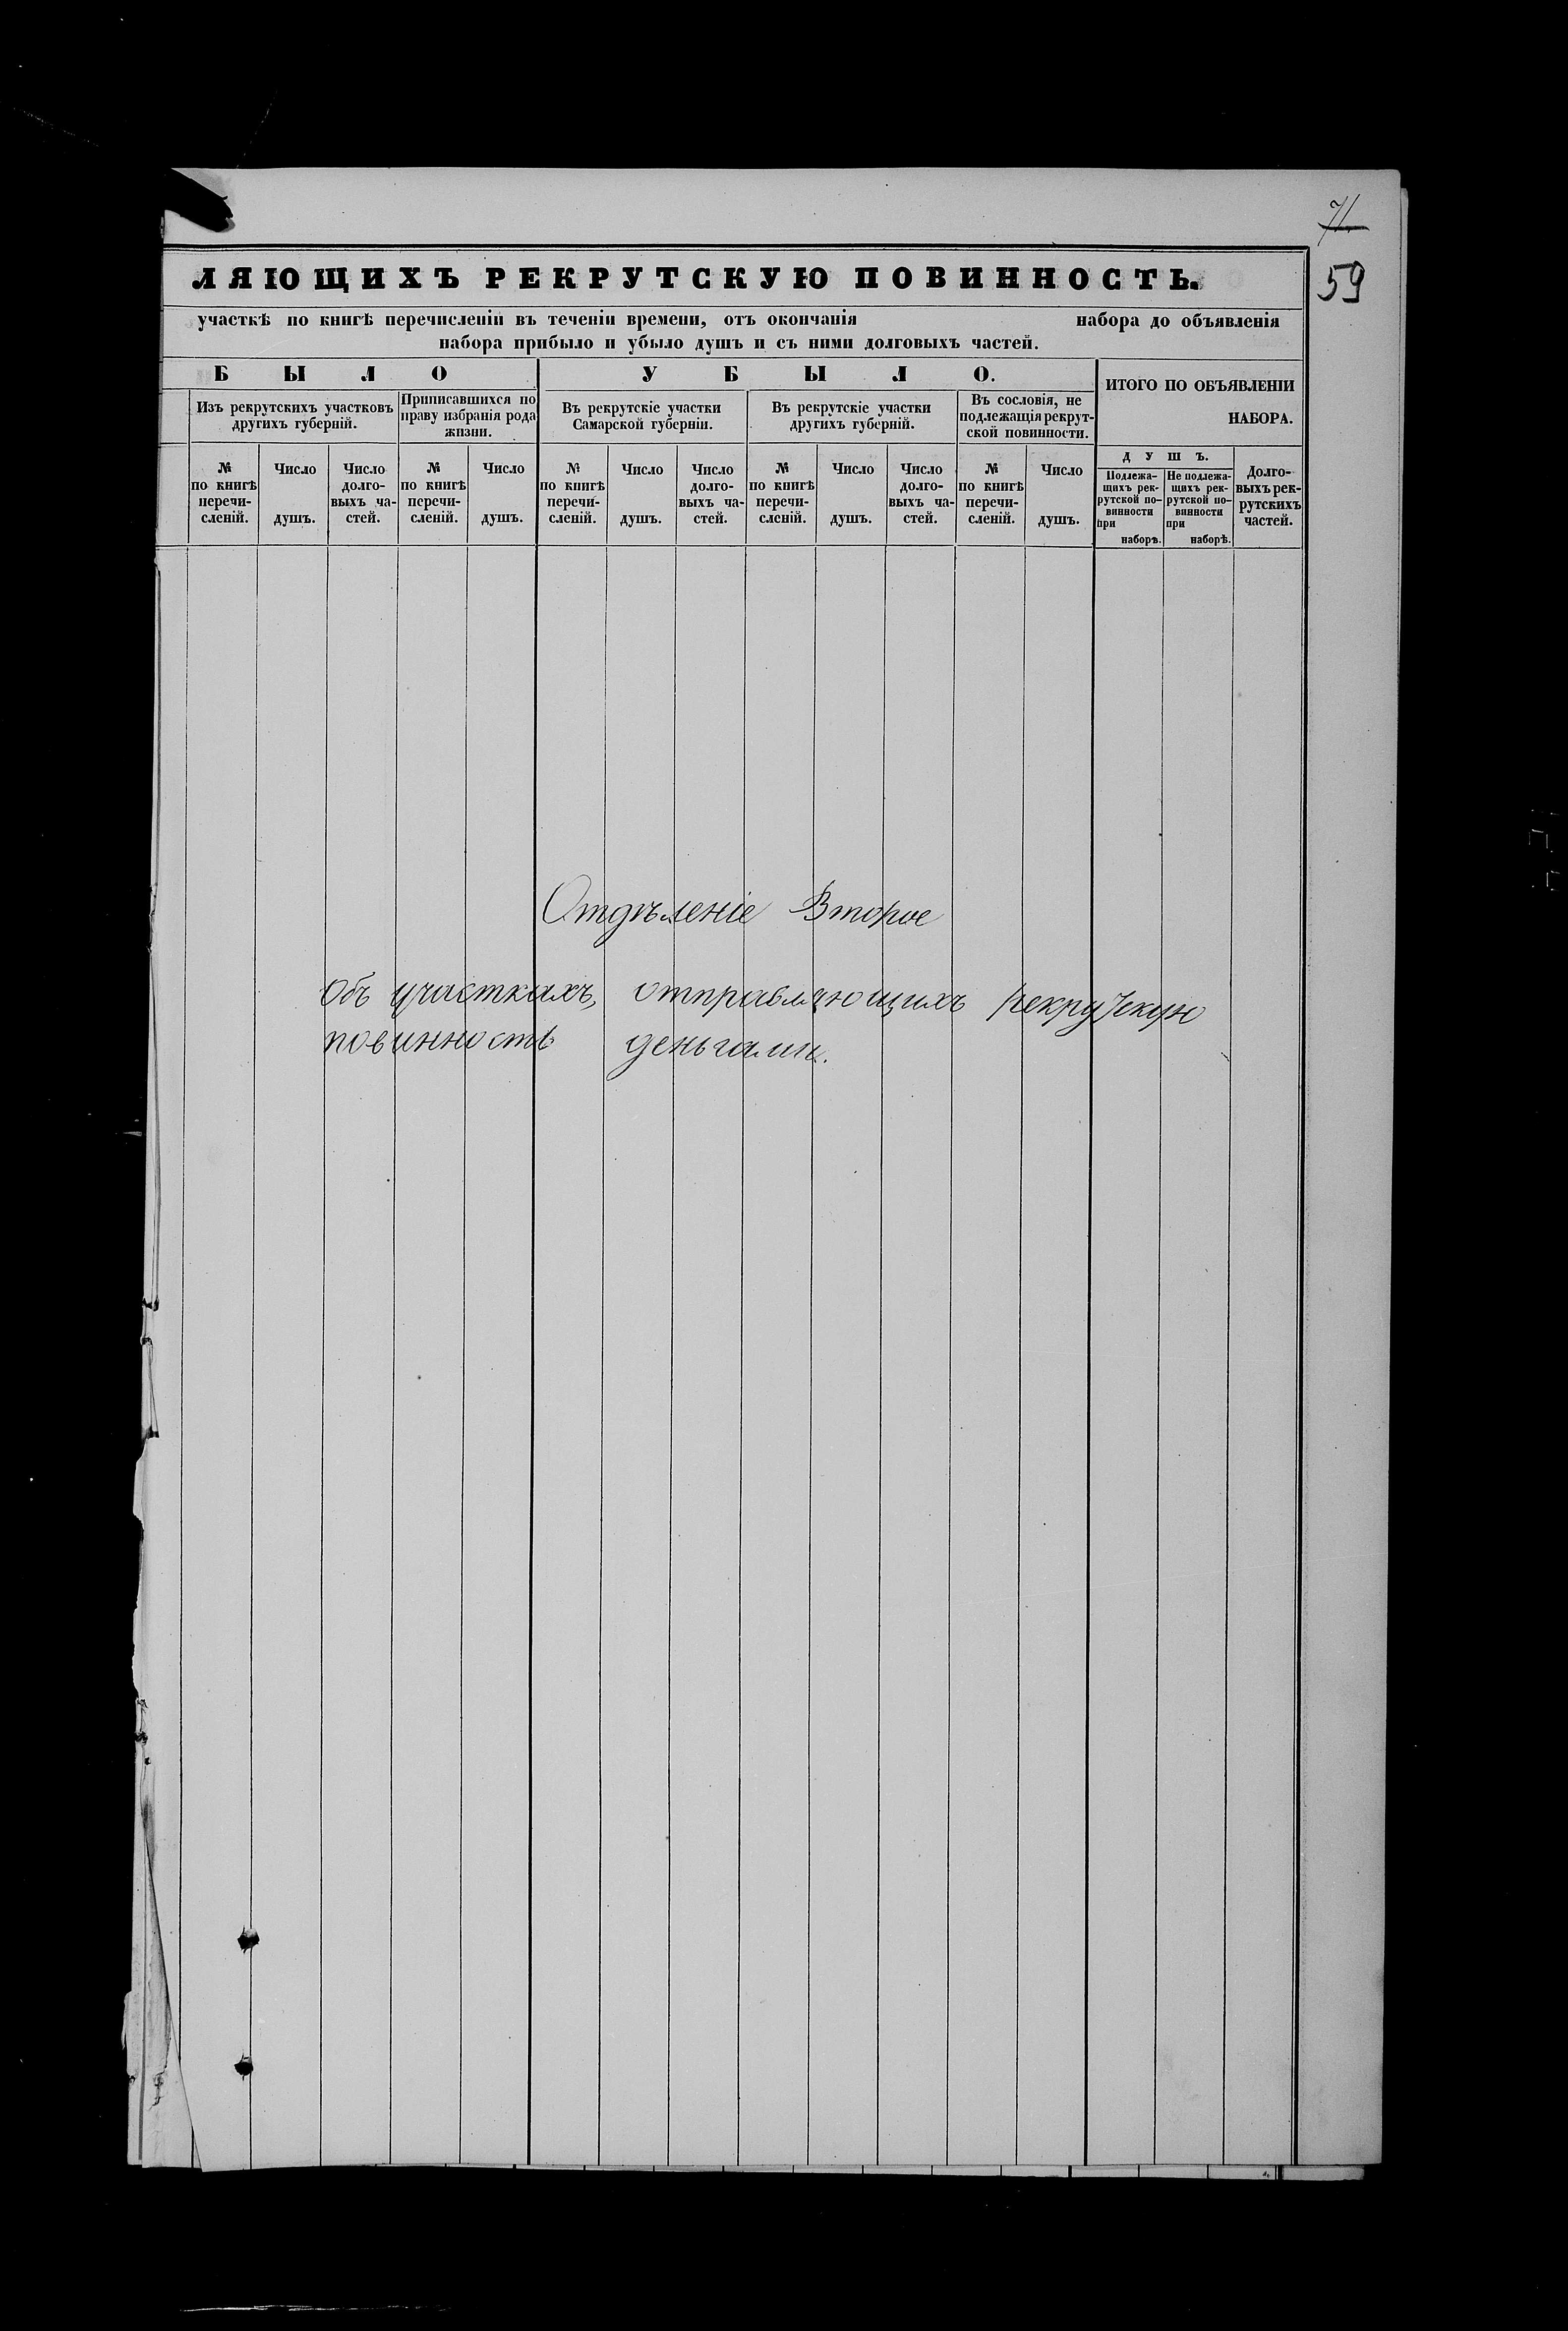 71
59
ЛЯЮЩИХЪ РЕКРУТСКУЮ ПОВИННОСТЬ.
участкѣ по книгѣ перечисленіи въ теченіи времени, отъ окончанія набора до объявленія
набора прибыло и убыло душъ и съ ними долговыхъ частей.
БЫЛО
Изъ рекрутскихъ участковъ
другихъ губерній.
Приписавшихся по
праву избранія рода
жизни.
УБЫЛО.
Въ рекрутскіе участки
Самарской губерніи.
Въ рекрутскіе участки
другихъ губерній.
Въ сословія, не
подлежащія рекрут-
ской повинности.
ИТОГО ПО ОБЪЯВЛЕНІИ
НАБОРА.
№
по книгѣ
перечи-
сленій.
Число
душъ.
Число
долго-
выхъ ча-
стей.
№
по книгѣ
перечи-
сленій.
Число
душъ.
№
по книгѣ
перечи-
сленій.
Число
душъ.
Число
долго-
выхъ ча-
стей.
№
по книгѣ
перечи-
сленій.
Число
душъ.
Число
долго-
выхъ ча-
стей.
№
по книгѣ
перечи-
сленій.
Число
душъ.
ДУШЪ.
Подлежа-
щихъ рек-
рутской по-
винности
при
наборѣ.
Не подлежа-
щихъ рек-
рутской по-
винности
при
наборѣ.
Долго-
выхъ рек-
рутскихъ
частей.
Отдѣленіе Второе
Объ участкахъ, отправляющихъ рекрутскую
повинность деньгами.